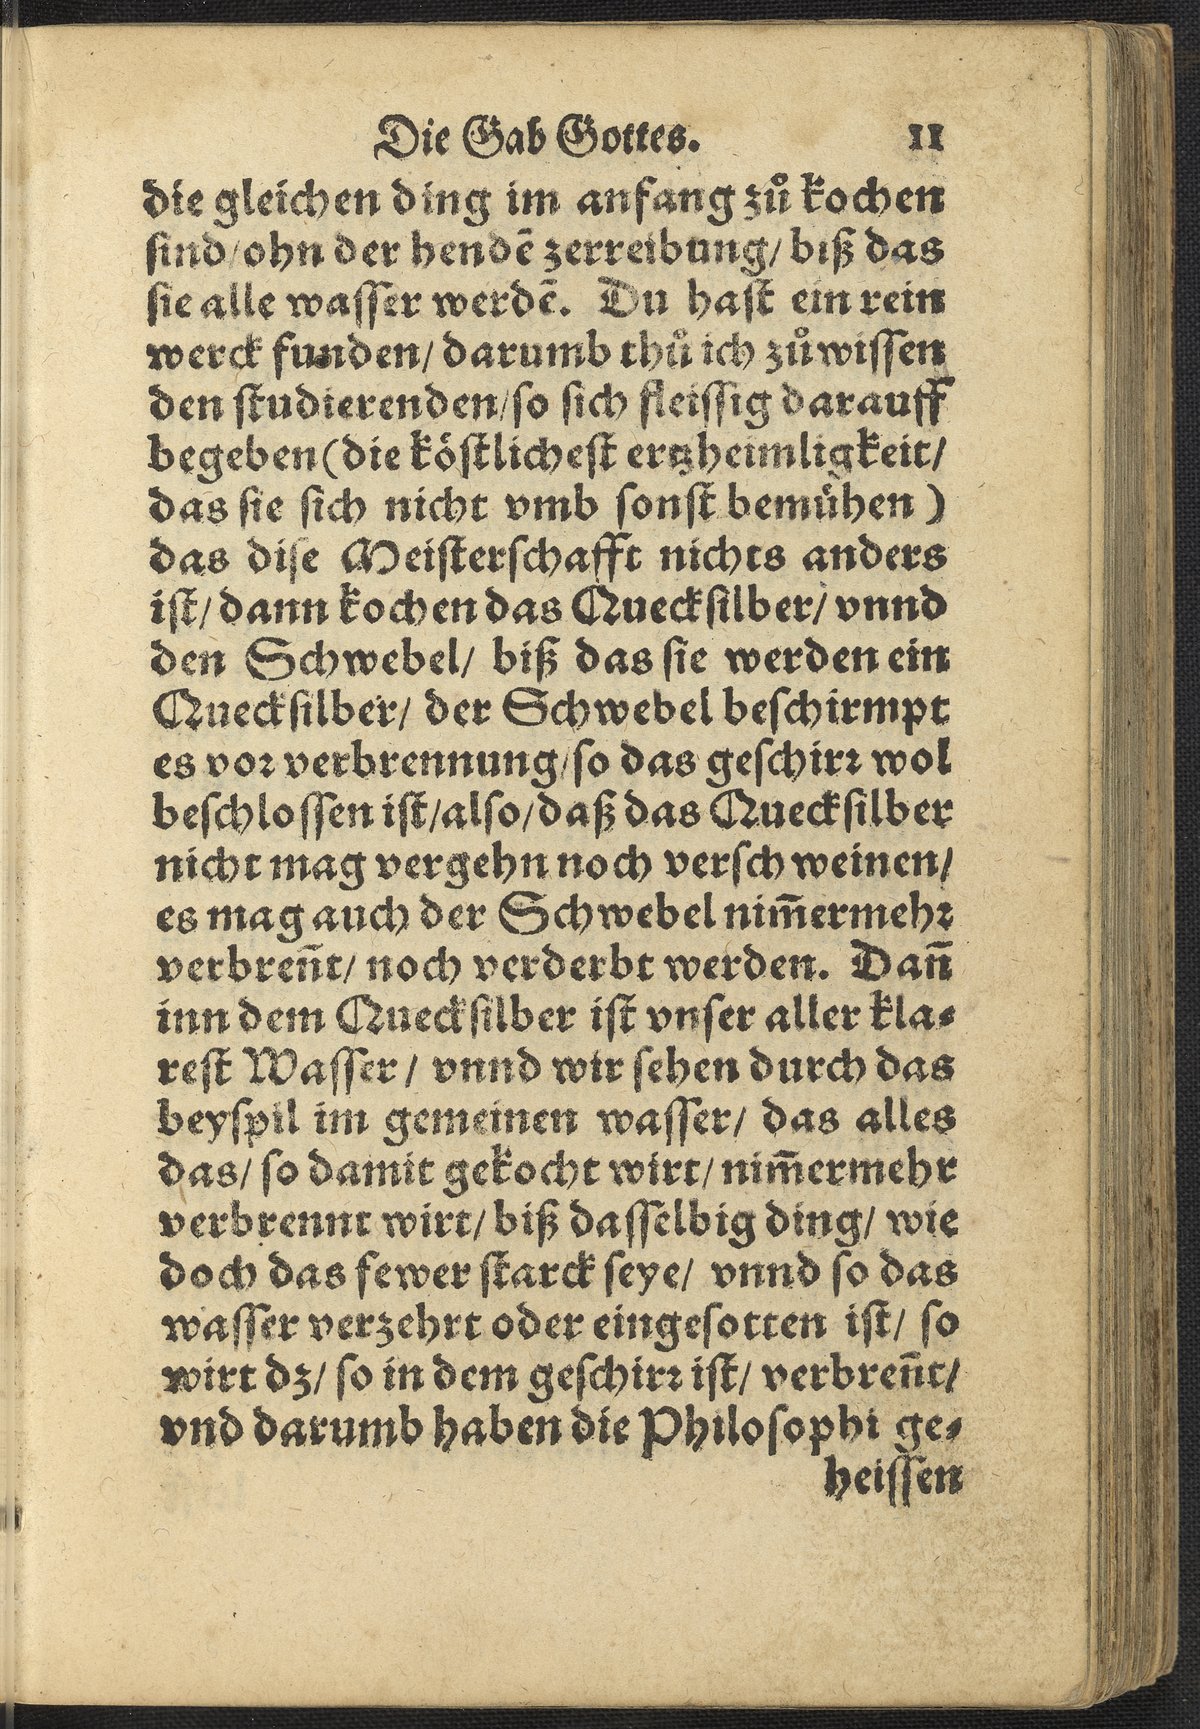 Die Gab Gottes. 11
die gleichen ding im anfang zů kochen
sind/ohn der hendē zerreibung/ biß das
sie alle wasser werdē. Du hast ein rein
werck funden/ darumb thů ich zůwissen
den studierenden/so sich fleissig darauff
begeben (die köstlichest ertzheimligkeit/
das sie sich nicht vmb sonst bemühen)
das dise Meisterschafft nichts anders
ist/ dann kochen das Quecksilber/ vnnd
den Schwebel/ biß das sie werden ein
Quecksilber/ der Schwebel beschirmpt
es vor verbrennung/so das geschirr wol
beschlossen ist/also/daß das Quecksilber
nicht mag vergehn noch verschweinen/
es mag auch der Schwebel nim̄ermehr
verbren̄t/ noch verderbt werden. Dan̄
inn dem Quecksilber ist vnser aller kla-
rest Wasser/ vnnd wir sehen durch das
beyspil im gemeinen wasser/ das alles
das/ so damit gekocht wirt/ nim̄ermehr
verbrennt wirt/ biß dasselbig ding/ wie
doch das fewer starck seye/ vnnd so das
wasser verzehrt oder eingesotten ist/ so
wirt dz/ so in dem geschirr ist/ verbren̄t/
vnd darumb haben die Philosophi ge-
heissen